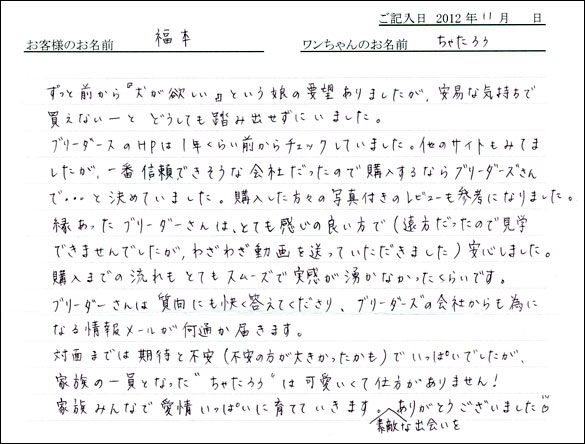 ご記入日 2012年11月 日
お客様のお名前 福本 ワンちゃんのお名前 ちゃたろう
ずっと前から『犬が欲しい』という娘の要望ありましたが、安易な気持ちで
買えないーと どうしても踏み出せずにいました。
ブリーダースのHPは1年くらい前からチェックしていました。他のサイトもみてま
したが、一番信頼できそうな会社だったので購入するならブリーダーズさん
で・・・と決めていました。購入した方々の写真付きのレビューも参考になりました。
縁あったブリーダーさんは、とても感じの良い方で(遠方だったので見学
できませんでしたが、わざわざ動画を送っていただきました)安心しました。
購入までの流れもとてもスムーズで実感が湧かなかったくらいです。
ブリーダーさんは質問にも快く答えてくださり、ブリーダーズの会社からも為に
なる情報メールが何通か届きます。
対面までは期待と不安(不安の方が大きかったかも)でいっぱいでしたが、
家族の一員となった"ちゃたろう"は可愛いくて仕方がありません!
家族みんなで愛情いっぱいに育てていきます。ありがとうございました
素敵な出会いを